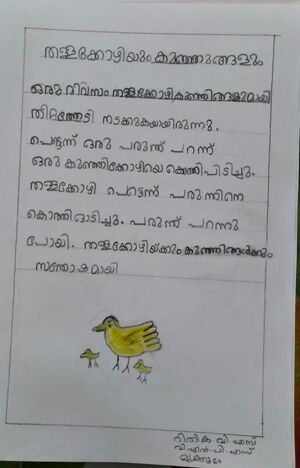 തള്ളക്കോഴിയും കുഞ്ഞുങ്ങളും
ഒരു ദിവസം തള്ളക്കോഴികുഞ്ഞിങ്ങളുമായി
തീറ്റതേടി നടക്കുകയായിരുന്നു.
പെട്ടന്ന് ഒരു പരുന്ത് പറന്ന്
ഒരു കുഞ്ഞിക്കോഴിയെ കൊത്തിപിടിച്ചു.
തള്ളക്കോഴി പെട്ടെന്ന് പരുന്തിനെ
കൊത്തിഓടിച്ചു. പരുന്ത് പറന്നു
പോയി. തള്ളക്കോഴിയ്ക്കും കുഞ്ഞിങ്ങൾക്കും
സന്തോഷമായി
റിതിക വി.എസ്
വി.എൻ.പി.എസ്